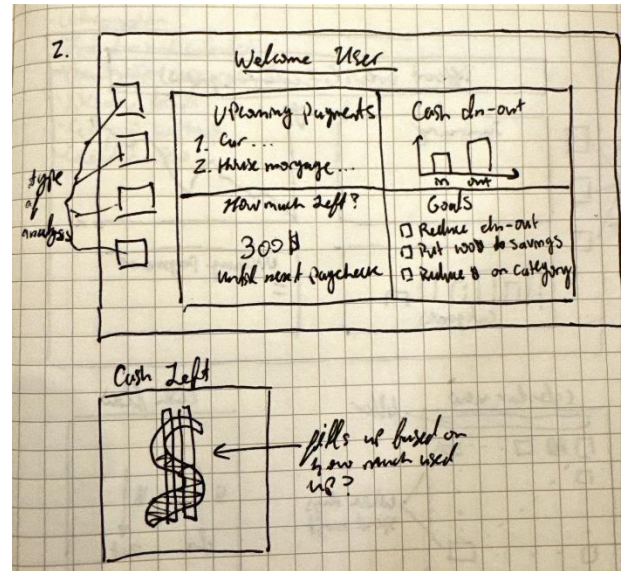 2.
Welcome User
type
of
analysis
Upcoming Payments
1. Car ...
2. House morgage ...
Cash In-out
in out
How much Left?
300$
until next paycheck
Goals
Reduce In-out
Put 100$ to savings
Reduce $ on Category
Cash Left
fills up based on
how much used
up?